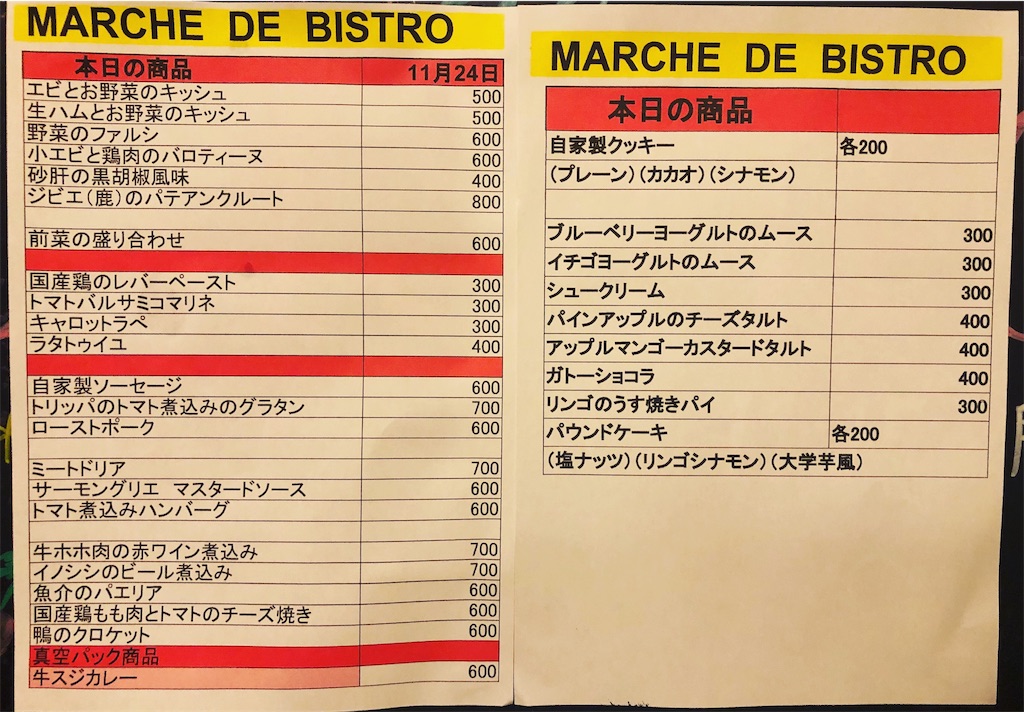 MARCHE DE BISTRO
本日の商品 11月24日
エビとお野菜のキッシュ 500
生ハムとお野菜のキッシュ 500
野菜のファルシ 600
小エビと鶏肉のバロティーヌ 600
砂肝の黒胡椒風味 400
ジビエ(鹿)のパテアンクルート 800
前菜の盛り合わせ 600
国産鶏のレバーペースト 300
トマトバルサミコマリネ 300
キャロットラペ 300
ラタトゥイユ 400
自家製ソーセージ 600
トリッパのトマト煮込みのグラタン 700
ローストポーク 600
ミートドリア 700
サーモングリエ マスタードソース 600
トマト煮込みハンバーグ 600
牛ホホ肉の赤ワイン煮込み 700
イノシシのビール煮込み 700
魚介のパエリア 600
国産鶏もも肉とトマトのチーズ焼き 600
鴨のクロケット 600
真空パック商品
牛スジカレー 600
MARCHE DE BISTRO
本日の商品
自家製クッキー 各200
(プレーン)(カカオ)(シナモン)
ブルーベリーヨーグルトのムース 300
イチゴヨーグルトのムース 300
シュークリーム 300
パインアップルのチーズタルト 400
アップルマンゴーカスタードタルト 400
ガトーショコラ 400
リンゴのうす焼きパイ 300
パウンドケーキ 各200
(塩ナッツ)(リンゴシナモン)(大学芋風)